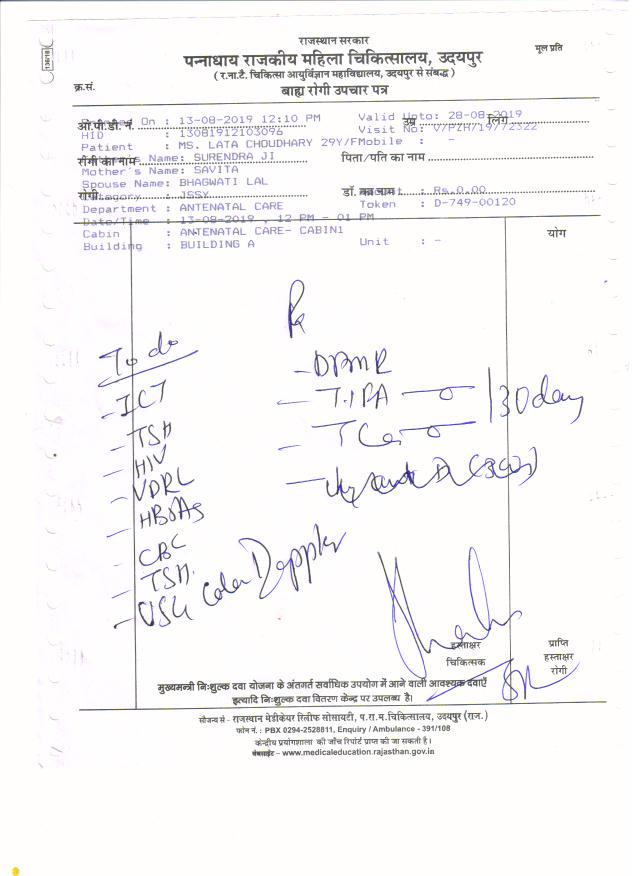 136/18
राजस्थान सरकार
मूल प्रति
पन्नाधाय राजकीय महिला चिकित्सालय, उदयपुर
( र.ना.टै. चिकित्सा आयुर्विज्ञान महाविद्यालय, उदयपुर से संबद्ध )
क्र.सं.
बाह्य रोगी उपचार पत्र
On : 13-08-2019 12:10 PM Valid Upto: 28-08-2019
ओ.पी.डी. नं. उम्र लिंग
HID : 13081912103096 Visit No: V/PZH/19/72322
Patient : MS. LATA CHOUDHARY 29Y/F Mobile : -
रोगी का नाम Name: SURENDRA JI पिता/पति का नाम
Mother's Name: SAVITA
Spouse Name: BHAGWATI LAL
रोगी : JSSY डॉ. का नाम : Rs.0.00
Department : ANTENATAL CARE Token : D-749-00120
Date/Time : 13-08-2019 , 12 PM - 01 PM
Cabin : ANTENATAL CARE- CABIN1 योग
Building : BUILDING A Unit : -
To do
- DPMR
- ICT
- T. IFA
30 day
- TSH
- HIV
- VDRL
- HBsAg
- CBC
- TSH.
- USG Color Doppler
हस्ताक्षर
चिकित्सक
प्राप्ति
हस्ताक्षर
रोगी
मुख्यमन्त्री निःशुल्क दवा योजना के अंतर्गत सर्वाधिक उपयोग में आने वाली आवश्यक दवाएँ
इत्यादि निःशुल्क दवा वितरण केन्द्र पर उपलब्ध है।
सौजन्य से - राजस्थान मेडीकेयर रिलीफ सोसायटी, प.रा.म.चिकित्सालय, उदयपुर (राज.)
फोन नं. : PBX 0294-2528811, Enquiry / Ambulance - 391/108
केन्द्रीय प्रयोगशाला की जाँच रिपोर्ट प्राप्त की जा सकती है।
वेबसाईट – www.medicaleducation.rajasthan.gov.in